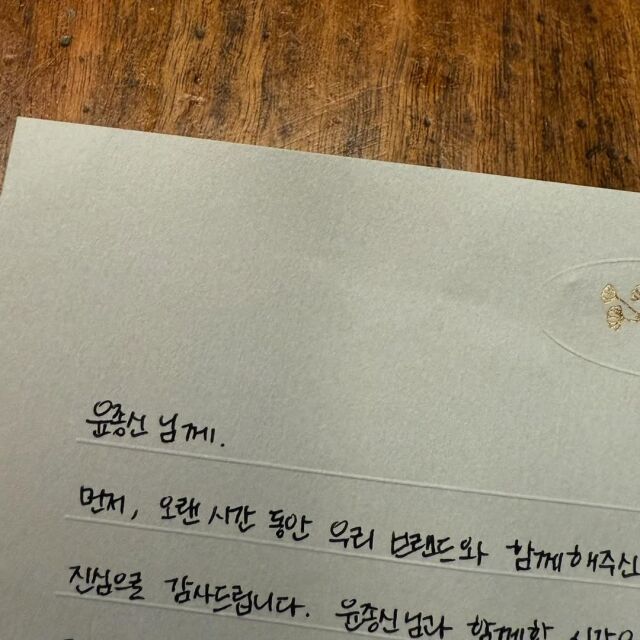 윤종신님께.
먼저, 오랜 시간 동안 우리 브랜드와 함께해주신
진심으로 감사드립니다. 윤종신님과 함께한 시간